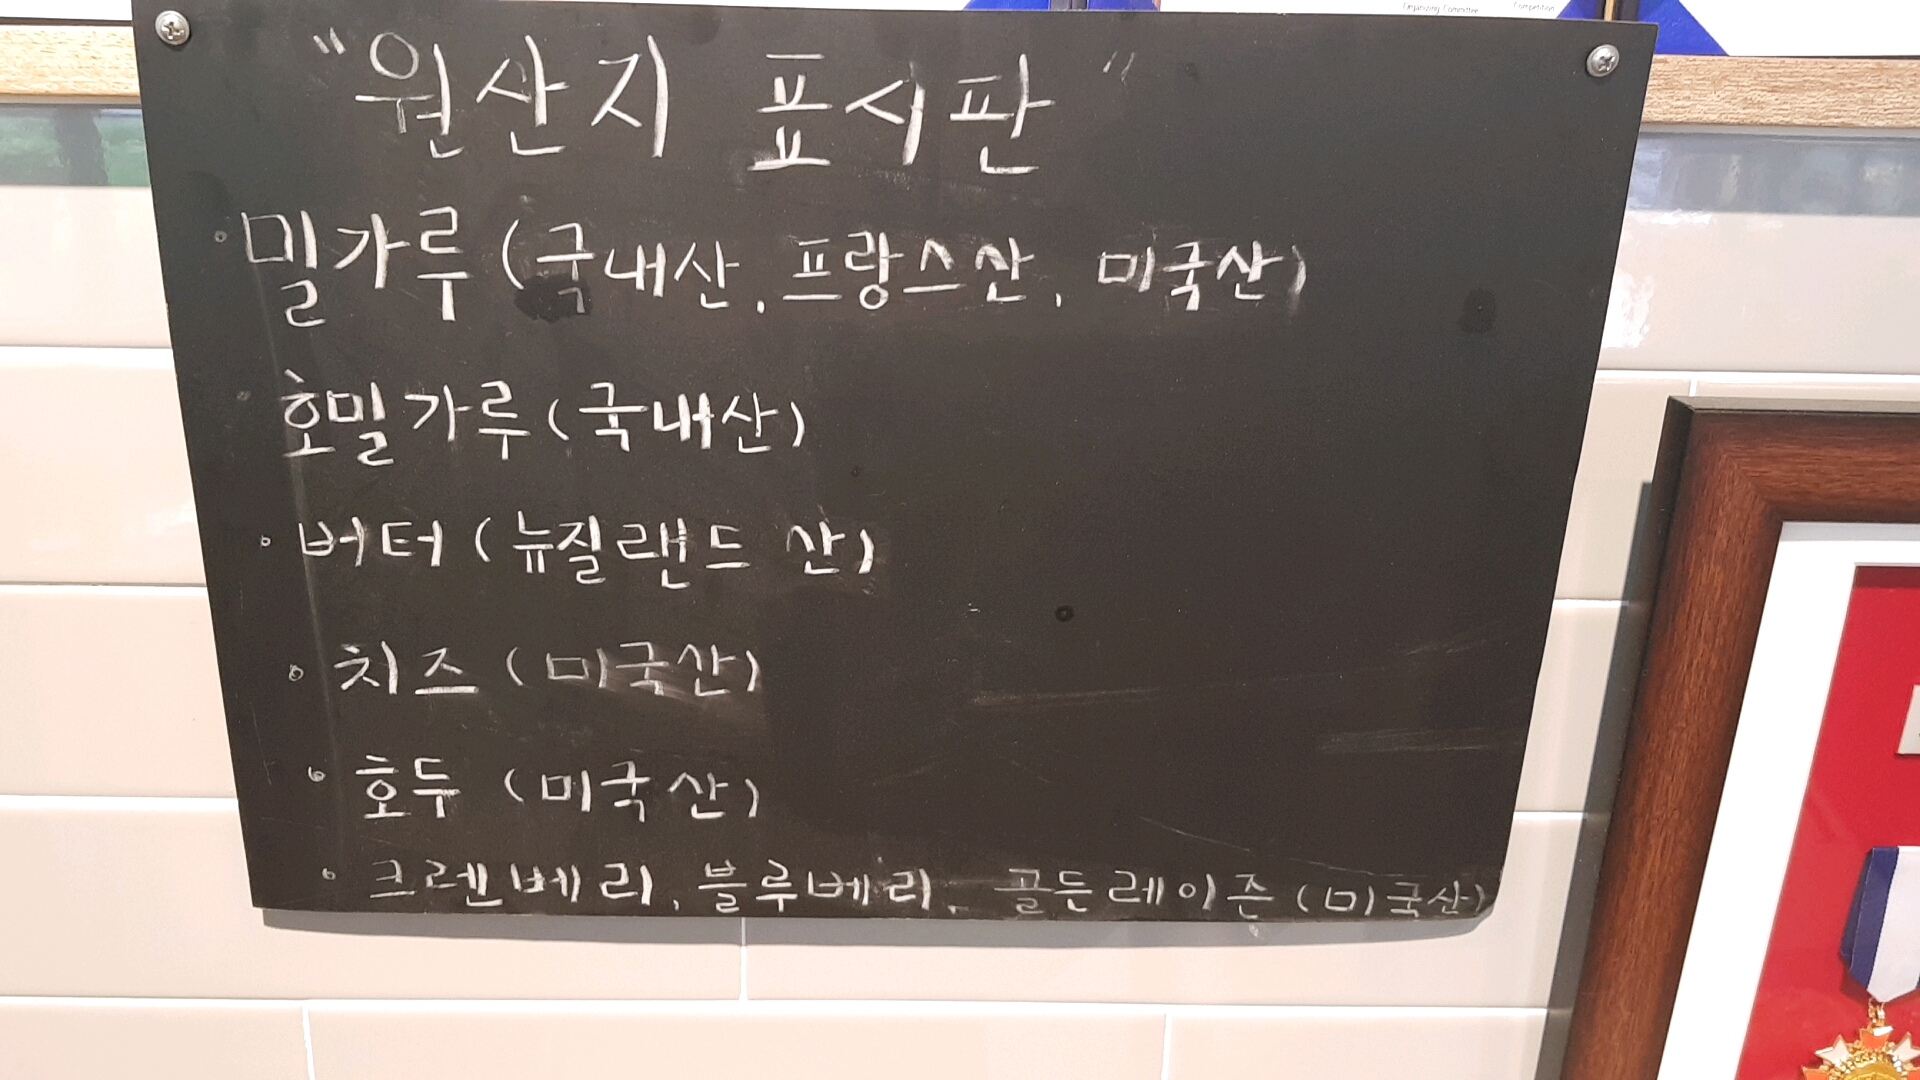 Organizing Committee Competition
"원산지 표시판"
· 밀가루 (국내산, 프랑스산, 미국산)
· 호밀가루 (국내산)
· 버터 (뉴질랜드 산)
· 치즈 (미국산)
· 호두 (미국산)
· 크렌베리, 블루베리, 골든레이즌 (미국산)